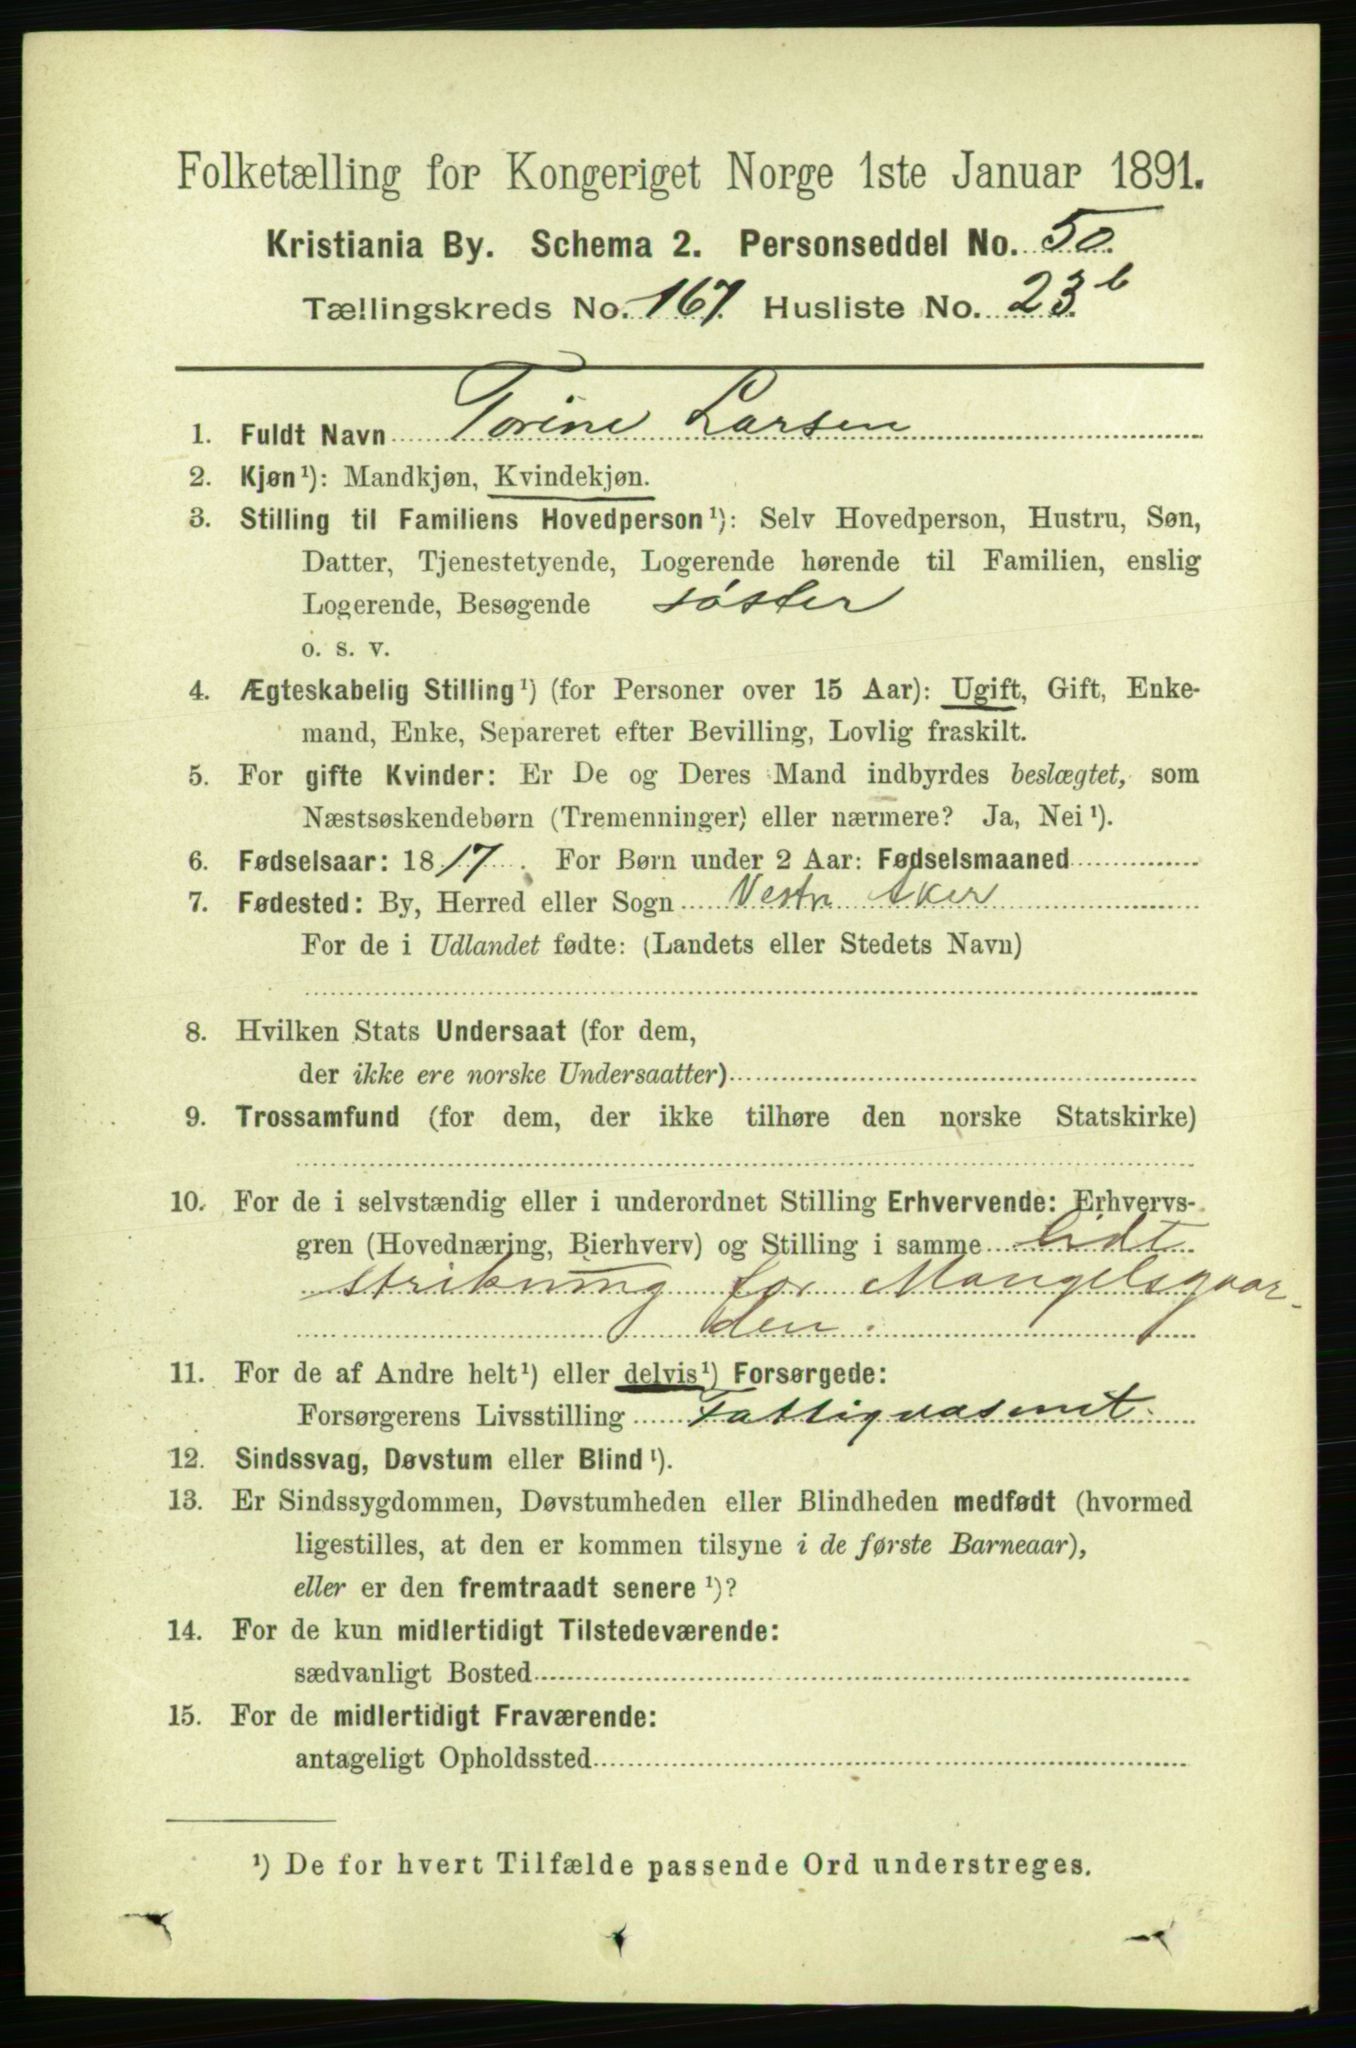 Folketælling for Kongeriget Norge 1ste Januar 1891.
Kristiania By. Schema 2. Personseddel No. 50.
Tællingskreds No. 167. Husliste No. 23.b
1. Fuldt Navn Torine Larsen
2. Kjøn¹): Mandkjøn, Kvindekjøn.
3. Stilling til Familiens Hovedperson¹): Selv Hovedperson, Hustru, Søn,
Datter, Tjenestetyende, Logerende hørende til Familien, enslig
Logerende, Besøgende søster
o. s. v.
4. Ægteskabelig Stilling¹) (for Personer over 15 Aar): Ugift, Gift, Enke-
mand, Enke, Separeret efter Bevilling, Lovlig fraskilt.
5. For gifte Kvinder: Er De og Deres Mand indbyrdes beslægtet, som
Næstsøskendebørn (Tremenninger) eller nærmere? Ja, Nei¹).
6. Fødselsaar: 1817. For Børn under 2 Aar: Fødselsmaaned
7. Fødested: By, Herred eller Sogn Vestre Aker
For de i Udlandet fødte: (Landets eller Stedets Navn)
8. Hvilken Stats Undersaat (for dem,
der ikke ere norske Undersaatter)
9. Trossamfund (for dem, der ikke tilhøre den norske Statskirke)
10. For de i selvstændig eller i underordnet Stilling Erhvervende: Erhvervs-
gren (Hovednæring, Bierhverv) og Stilling i samme lidt
strikning for Mangelsgaar-
den.
11. For de af Andre helt¹) eller delvis¹) Forsørgede:
Forsørgerens Livsstilling Fattigvæsenet.
12. Sindssvag, Døvstum eller Blind¹).
13. Er Sindssygdommen, Døvstumheden eller Blindheden medfødt (hvormed
ligestilles, at den er kommen tilsyne i de første Barneaar),
eller er den fremtraadt senere¹)?
14. For de kun midlertidigt Tilstedeværende:
sædvanligt Bosted
15. For de midlertidigt Fraværende:
antageligt Opholdssted
¹) De for hvert Tilfælde passende Ord understreges.